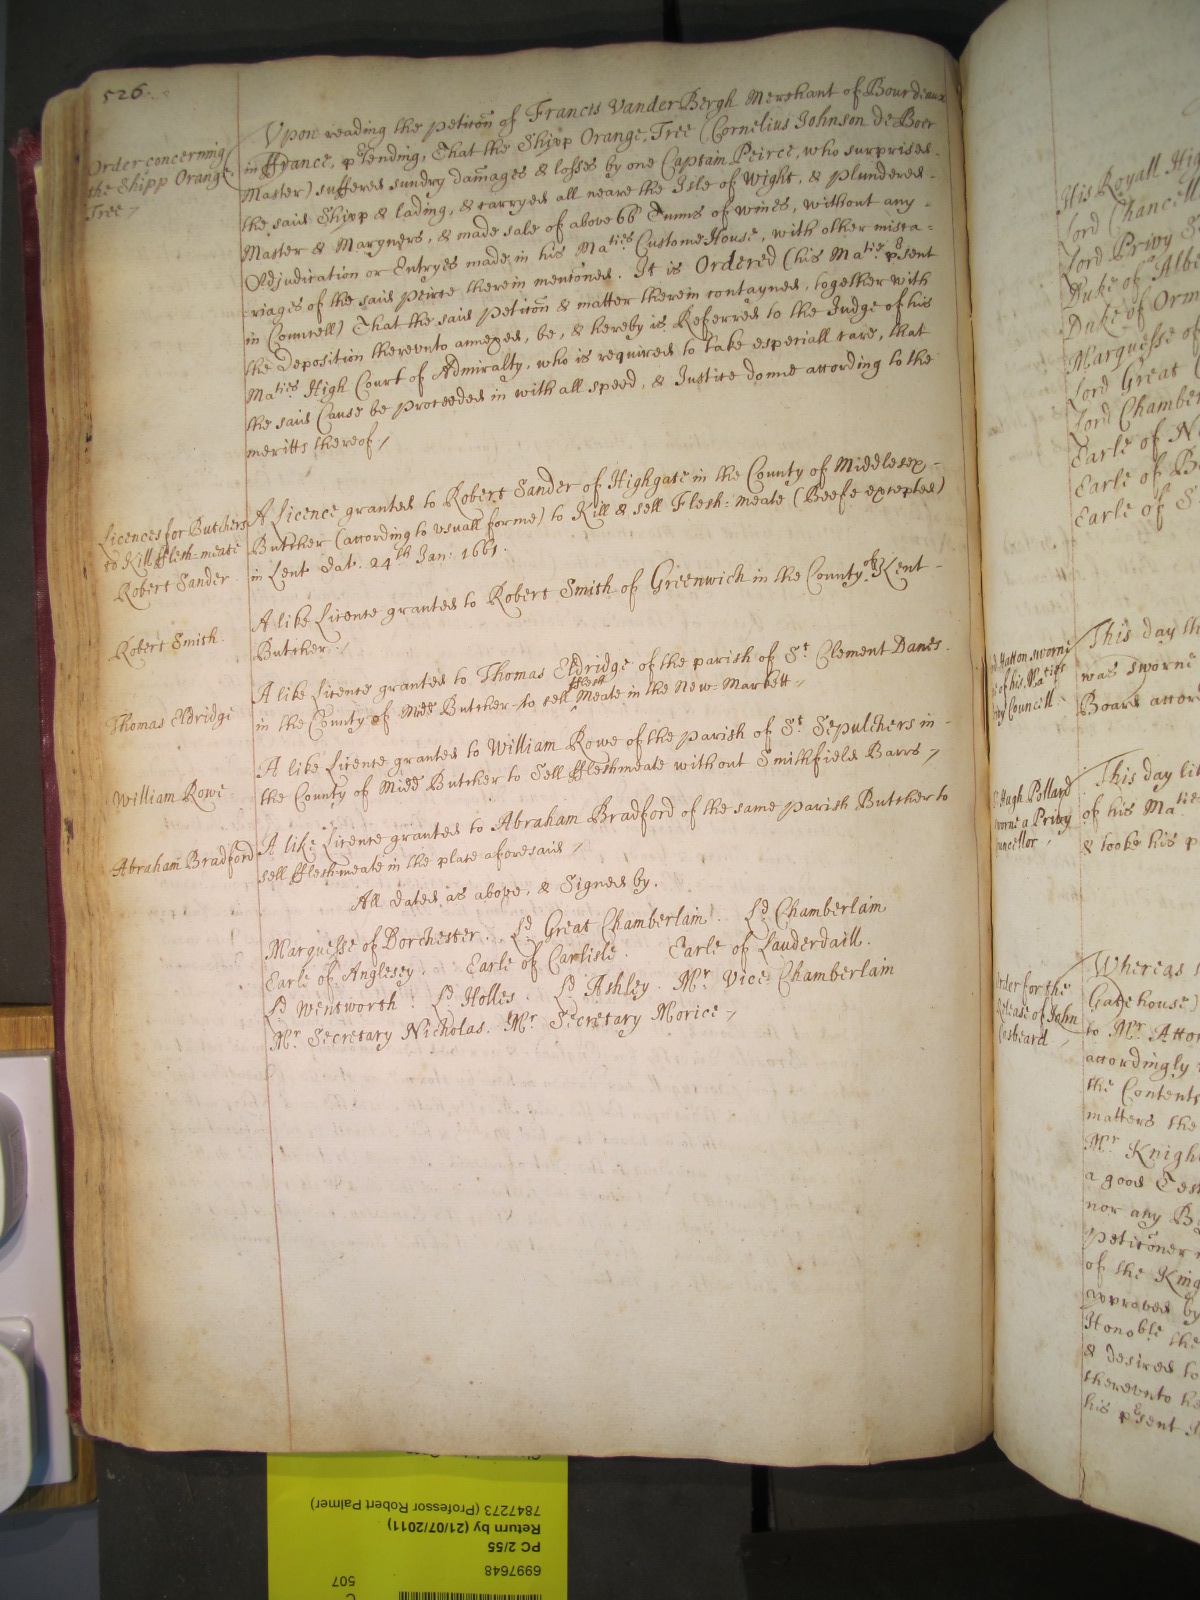 526.
Order concerning
the Shipp Orange
Tree /
Vpon reading the petic̄on of Francis VanderBergh Merchant of Bourdeaux
in ffrance, p̱tending, That the Shipp Orange Tree (Cornelius Johnson de Boer
Master) suffered sundry dam̄ages & losses by one Captain Peirce, who surprised
the said Shipp & lading, & carryed all neare the Isle of Wight, & plundered
Master & Maryners, & made sale of above 66 Tunns of wines, without any
Adjudication or Entryes made in his Maties CustomeHouse, with other misca=
riages of the said Peirce therein menc̄oned. It is Ordered (his Matie p̱sent
in Councell) That the said Petic̄on & matter therein contayned, together with
the Deposition therevnto annexed, be, & hereby is Referred to the Judge of his
Maties High Court of Admiralty, who is required to take especiall care, that
the said Cause be proceeded in with all speed, & Justice donne according to the
meritts thereof /
Licences for Butchers
to Kill fflesh=meate
Robert Sander
A Licence granted to Robert Sander of Highgate in the County of Middlesex
Butcher (according to vsuall forme) to Kill & sell Flesh=meate (Beefe excepted)
in Lent Dat. 24th Jan: 1661.
Robert Smith.
A like Licence granted to Robert Smith of Greenwich in the County of Kent
Butcher /
Thomas Eldridge
A like Licence granted to Thomas Eldridge of the parish of St Clement Danes
in the County of Midd Butcher to sell fflesh Meate in the New=Markett /
William Rowe
A like Licence granted to William Rowe of the parish of St Sepulchers in
the County of Midd Butcher to Sell ffleshmeate without Smithfield Barrs /
Abraham Bradford
A like Licence granted to Abraham Bradford of the same parish Butcher to
sell ffleshmeate in the place aforesaid /
All dated as above, & Signed by.
Marquesse of Dorchester. Ld Great Chamberlain. Ld Chamberlain
Earle of Anglesey. Earle of Carlisle. Earle of Lauderdaill.
Ld Wentworth. Ld Holles. Ld Ashley. Mr Vice Chamberlain
Mr Secretary Nicholas. Mr Secretary Morice /
His Royall
Lord
Lord Privy
Duke of
Duke of
Marquesse of
Lord Great
Lord
Earle of
Earle of
Earle of
Hatton sworne
of his Maties
Councill
This day
was sworne
Board
Hugh Pollard
a Privy
This day
of his Maties
& tooke his
for the
of John
Whereas
Gatehouse)
to Mr
attordingly
the Contents
matters the
Mr
a good
nor any
petic̄oner
of the
approved by
Honoble the
& desired to
therevnto
his p̱sent
507
6997648
PC 2/55
Return by (21/07/2011)
7847273 (Professor Robert Palmer)